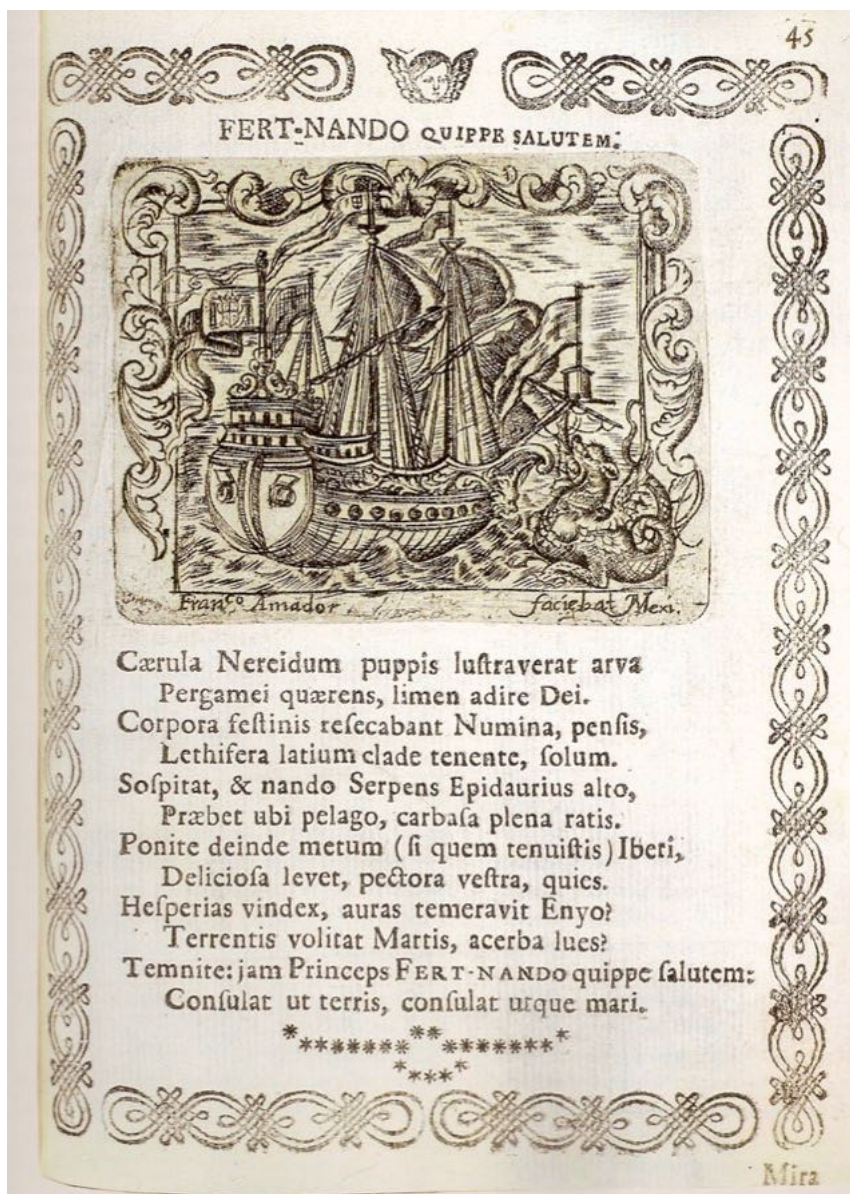 45
FERT-NANDO QUIPPE SALUTEM.
Franco Amador faciebat Mexi.
Cærula Nereidum puppis luſtraverat arva
Pergamei quærens, limen adire Dei.
Corpora feſtinis reſecabant Numina, penſis,
Lethifera latium clade tenente, ſolum.
Soſpitat, & nando Serpens Epidaurius alto,
Præbet ubi pelago, carbaſa plena ratis.
Ponite deinde metum (ſi quem tenuiſtis) Iberi,
Delicioſa levet, pectora veſtra, quies.
Heſperias vindex, auras temeravit Enyo?
Terrentis volitat Martis, acerba lues?
Temnite: jam Princeps FERT-NANDO quippe ſalutem:
Conſulat ut terris, conſulat utque mari.
Mira